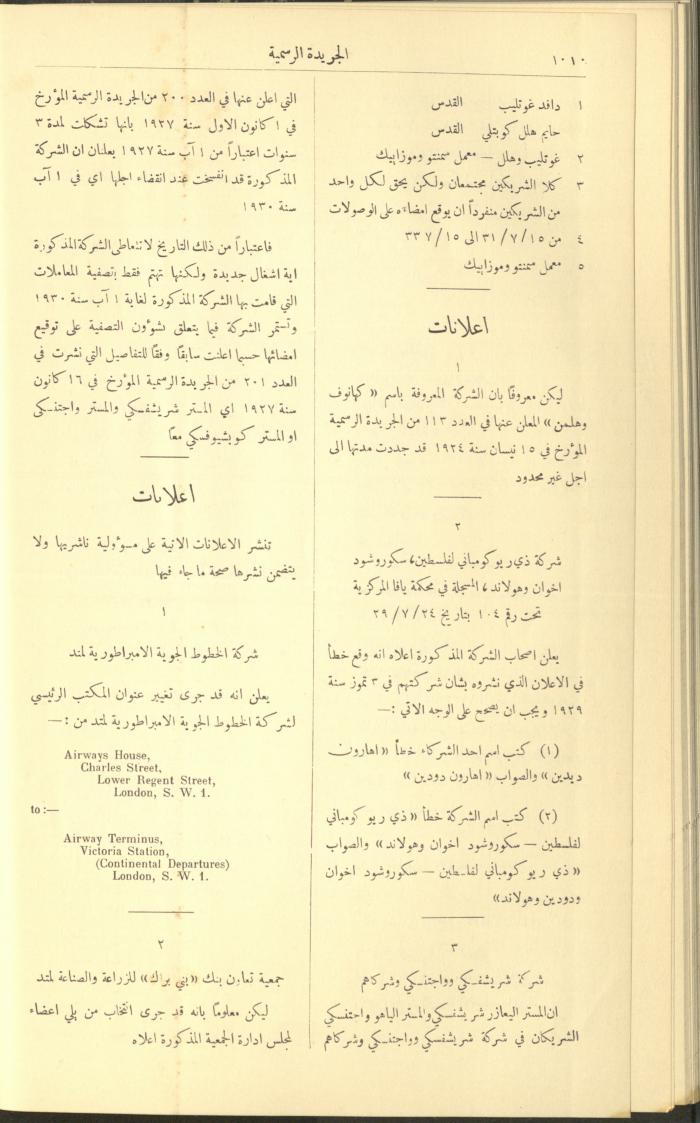 ١٠١٠
الجريدة الرسمية
١ دافد غوتليب القدس
حايم هلل كوبتلي القدس
٢ غوتليب وهلل — معمل سمنتو وموزاييك
٣ كلا الشريكين مجتمعان ولكن يحق لكل واحد
من الشريكين منفرداً ان يوقع امضاءه على الوصولات
٤ من ٣١/٧/١٥ الى ٣٣٧/١٥
٥ معمل سمنتو وموزاييك
اعلانات
١
ليكن معروفاً بان الشركة المعروفة باسم « كهانوف
وهلمن » المعلن عنها في العدد ١١٣ من الجريدة الرسمية
المؤرخ في ١٥ نيسان سنة ١٩٢٤ قد جددت مدتها الى
اجل غير محدود
٢
شركة ذي ريو كومباني لفلسطين، سكوروشود
اخوان وهولاند، المسجلة في محكمة يافا المركزية
تحت رقم ١٠٤ بتاريخ ٢٤/٧/٢٩
يعلن اصحاب الشركة المذكورة اعلاه انه وقع خطأ
في الاعلان الذي نشروه بشان شركتهم في ٣ تموز سنة
١٩٢٩ ويجب ان يصحح على الوجه الاتي :—
(١) كتب اسم احد الشركاء خطأ « اهارون
ديدين » والصواب « اهارون دودين »
(٢) كتب اسم الشركة خطأ « ذي ريو كومباني
لفلسطين — سكوروشود اخوان وهولاند » والصواب
« ذي ريو كومباني لفلسطين — سكوروشود اخوان
ودودين وهولاند»
٣
شركة شريشفسكي وواجتنسكي وشركاهم
ان المستر اليعازر شريشفسكي والمستر الياهو واجتفسكي
الشريكان في شركة شريشفسكي وواجتنسكي وشركاهم
التي اعلن عنها في العدد ٢٠٠ من الجريدة الرسمية المؤرخ
في ١ كانون الاول سنة ١٩٢٧ بانها تشكلت لمدة ٣
سنوات اعتباراً من ١ آب سنة ١٩٢٧ يعلنان ان الشركة
المذكورة قد انفسخت عند انقضاء اجلها اي في ١ آب
سنة ١٩٣٠
فاعتباراً من ذلك التاريخ لا تتعاطى الشركة المذكورة
اية اشغال جديدة ولكنها تهتم فقط بتصفية المعاملات
التي قامت بها الشركة المذكورة لغاية ١ آب سنة ١٩٣٠
وتستمر الشركة فيما يتعلق بشؤون التصفية على توقيع
امضائها حسبما اعلنت سابقاً وفقاً للتفاصيل التي نشرت في
العدد ٢٠١ من الجريدة الرسمية المؤرخ في ١٦ كانون
سنة ١٩٢٧ اي المستر شريشفسكي والمستر واجتنسكي
او المستر كوبشيوفسكي معاً
اعلانات
تنشر الاعلانات الاتية على مسؤولية ناشريها ولا
يتضمن نشرها صحة ما جاء فيها
١
شركة الخطوط الجوية الامبراطورية لمتد
يعلن انه قد جرى تغيير عنوان المكتب الرئيسي
لشركة الخطوط الجوية الامبراطورية لمتد من :—
Airways House,
Charles Street,
Lower Regent Street,
London, S. W. 1.
to :—
Airway Terminus,
Victoria Station,
(Continental Departures)
London, S. W. 1.
٢
جمعية تعاون بنك «بني براك» للزراعة والصناعة لمتد
ليكن معلوماً بانه قد جرى انتخاب من يلي اعضاء
لمجلس ادارة الجمعية المذكورة اعلاه